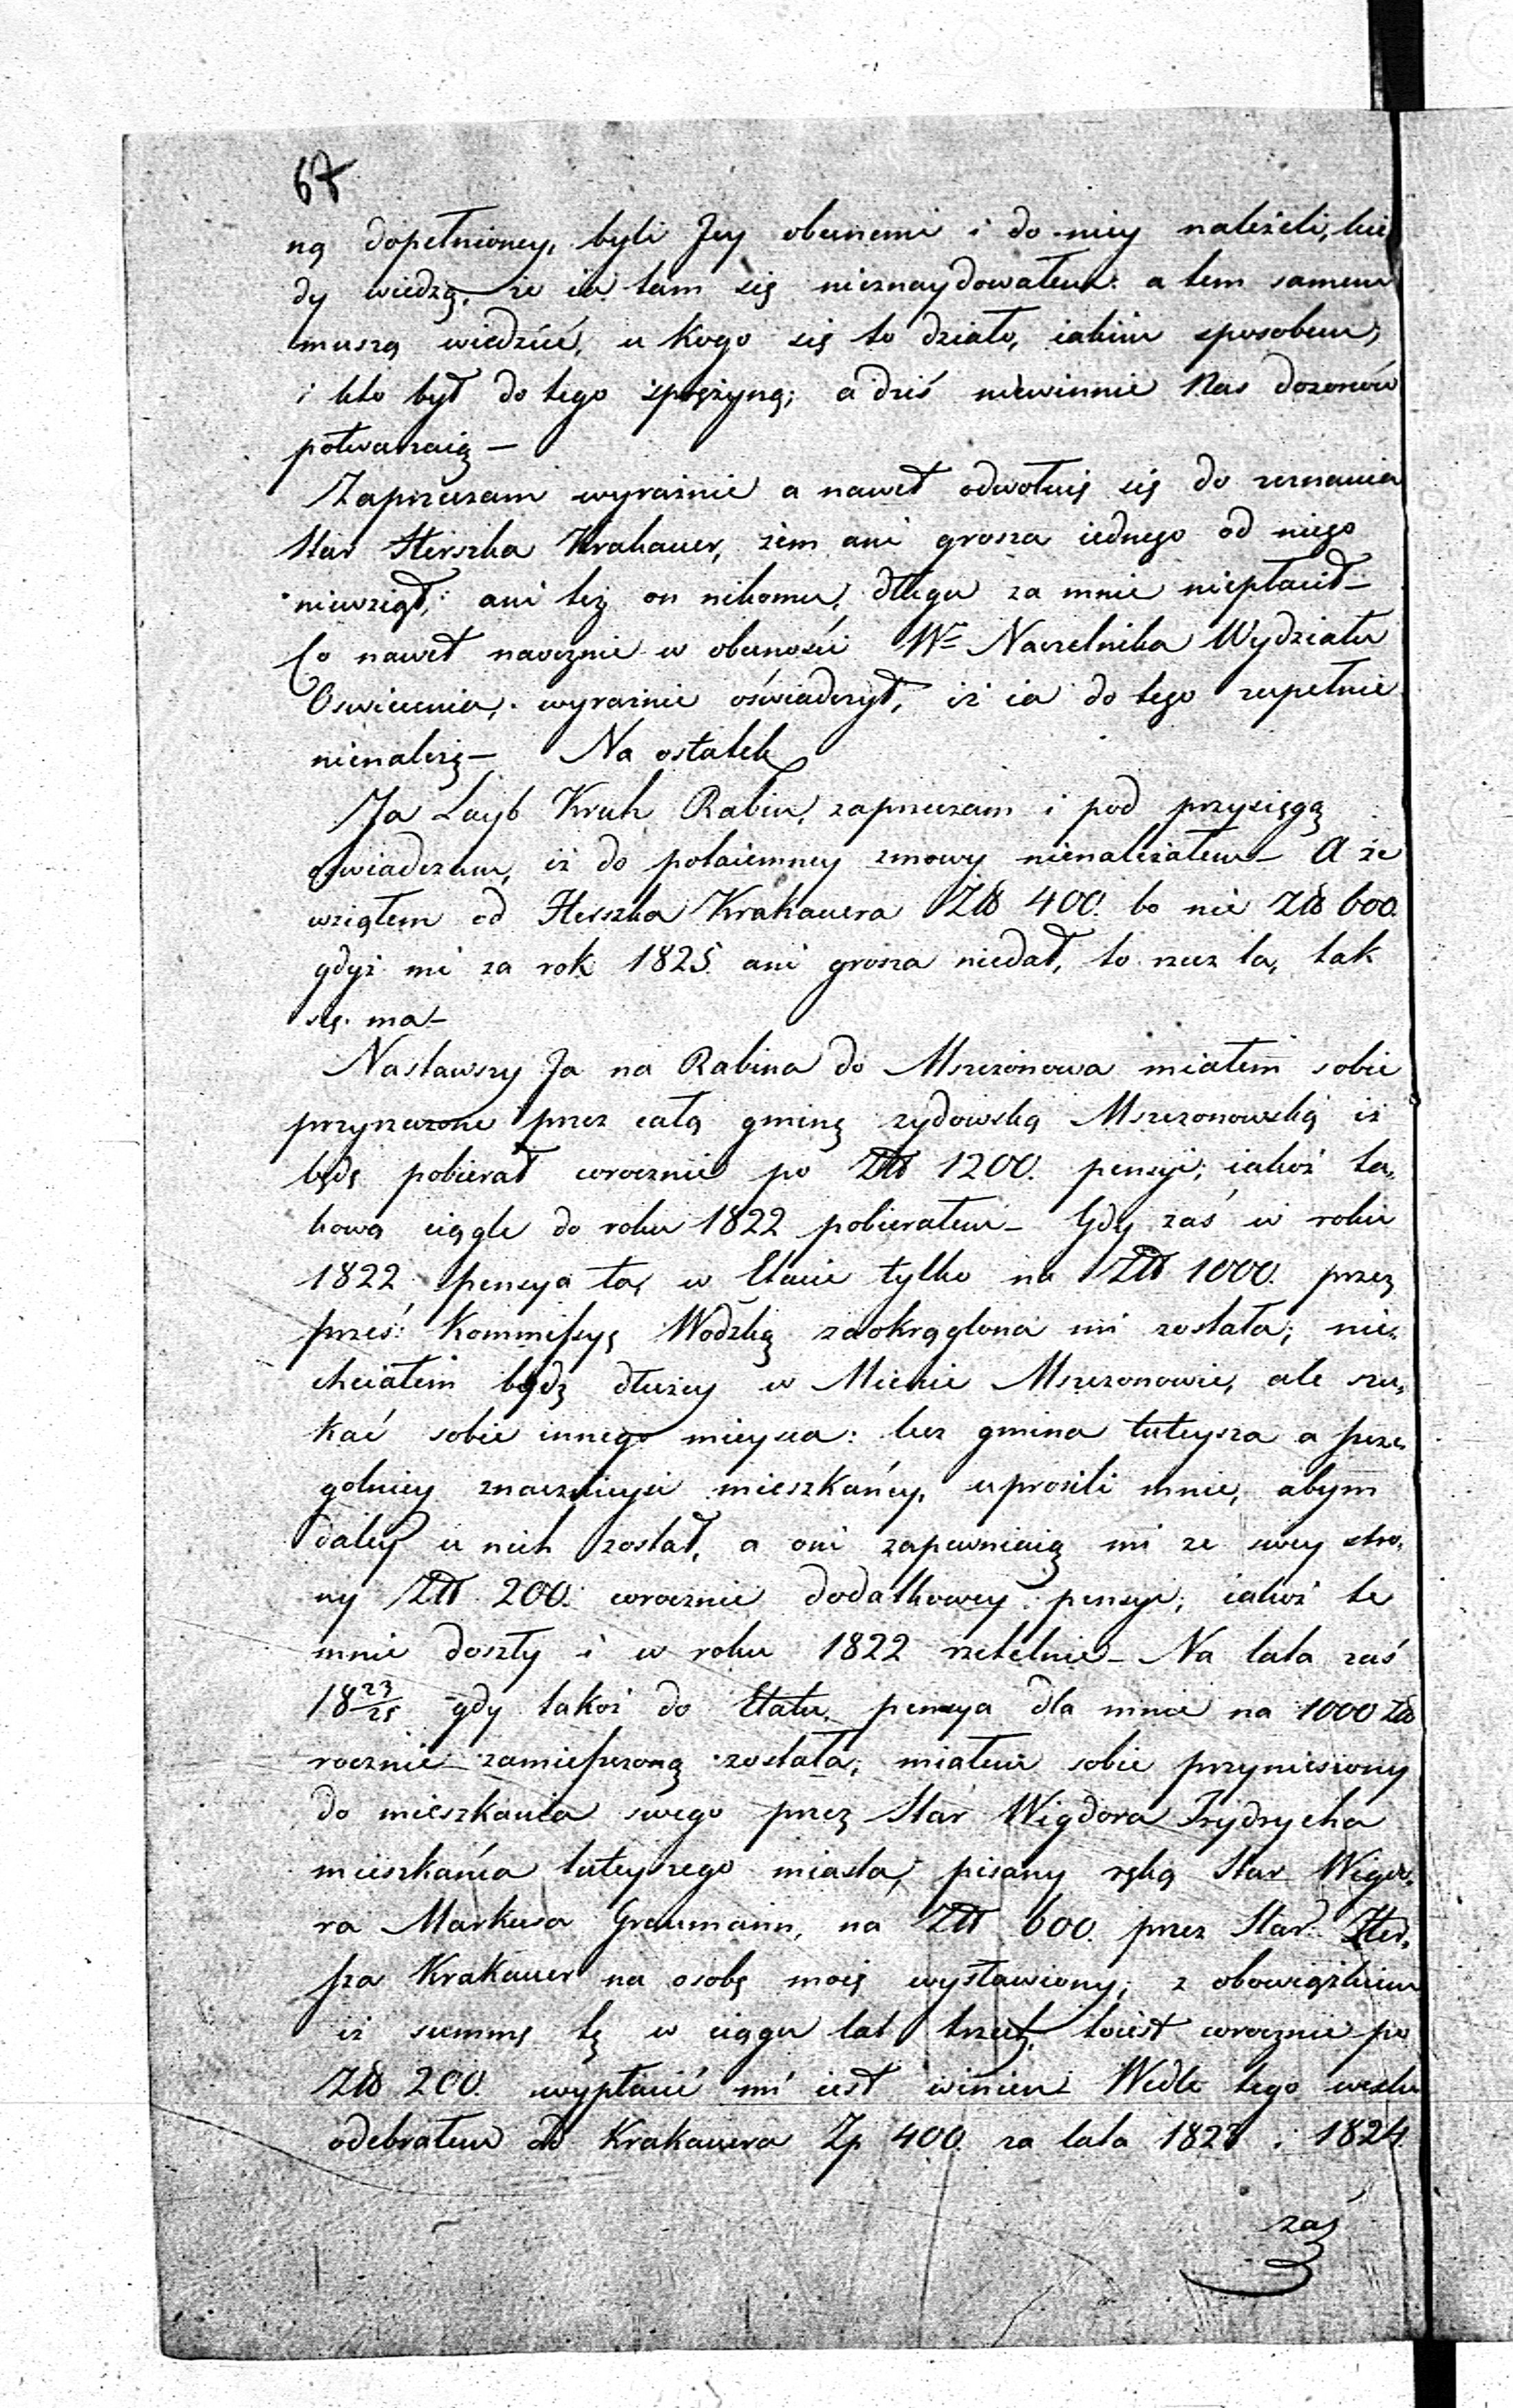 67
ną dopełnioney, byli Jey obecnemi i do niey należeli, kie
dy wiedzą, że ia tam się nieznaydowałem: a tem samem
muszą wiedzieć, u kogo się to działo, iakim sposobem,
i kto był do tego sprężyną; a dziś niewinnie Nas dozorców
potwarzaią —
Zaprzeczam wyraźnie a nawet odwołuię się do zeznania
Star Herszka Krakauer, żem ani grosza iednego od niego
niewziął, ani też on nikomu, długu za mnie niepłacił —
Co nawet naocznie w obecności Wº Naczelnika Wydziału
Oswiecenia, wyraźnie oświadczył, iż ia do tego zupełnie
nienależę — Na ostatek
Ja Layb Kruk Rabin, zaprzeczam i pod przysięgą
oświadczam, iż do potaiemney zmowy nienależałem — A że
wziąłem od Herszka Krakauera Złł 400. bo nie Złł 600.
gdyż mi za rok 1825 ani grosza niedał, to rzecz ta, tak
się ma —
Nastawszy Ja na Rabina do Mszczonowa miałem sobie
przyrzeczone przez całą gminę żydowską Mszczonowską iż
będę pobierał corocznie po Złł 1200. pensyi; iakoż ta„
kową ciągle do roku 1822 pobierałem — Gdy zaś w roku
1822 pensya ta, w Etacie tylko na Złł 1000. przez
prześ: Kommissyę Wodzką zaokrąglona mi została; nie„
chciałem bydź dłużey w Mieście Mszczonowie, ale szu„
kać sobie innego mieysca: lecz gmina tuteysza a szcze„
golniey znacznieysi mieszkańcy, uprosili mnie, abym
daley u nich został, a oni zapewnieią mi ze swey stro„
ny Złł 200. corocznie dodatkowey pensyi; iakoż te
mnie doszły i w roku 1822 rzetelnie — Na lata zaś
18 23/25 gdy takoż do Etatu, pensya dla mnie na 1000 Złł
rocznie zamieszczoną została; miałem sobie przyniesiony
do mieszkania swego przez Star Wigdora Frydrycha
mieszkańca tuteyszego miasta, pisany ręką Star Wigdo„
ra Markusa Graumann, na Złł 600. przez Star. Her„
szka Krakauer na osobę moię wystawiony; z obowiązkiem
iż summę tę w ciągu lat trzech, toiest corocznie po
Złł 200. wypłacić mi iest winien. Wedle tego wexlu
odebrałem od Krakauera Zp 400. za lata 1823 i 1824.
zaś